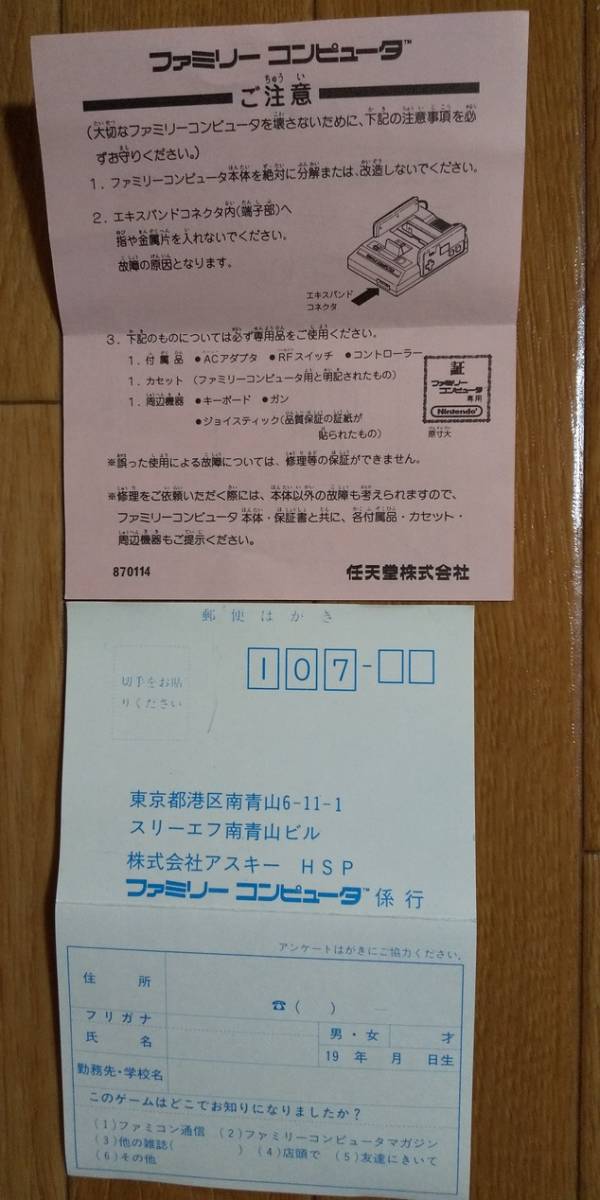 ファミリー コンピュータ™
ご注意
(大切なファミリーコンピュータを壊さないために、下記の注意事項を必
ずお守りください。)
1. ファミリーコンピュータ本体を絶対に分解または、改造しないでください。
2. エキスパンドコネクタ内(端子部)へ
指や金属片を入れないでください。
故障の原因となります。
エキスパンド
コネクタ
3. 下記のものについては必ず専用品をご使用ください。
1. 付属品 ●ACアダプタ ●RFスイッチ ●コントローラー
1. カセット (ファミリーコンピュータ用と明記されたもの)
1. 周辺機器 ●キーボード ●ガン
●ジョイスティック(品質保証の証紙が
貼られたもの)
証
ファミリー
コンピュータ
専用
Nintendo
原寸大
※誤った使用による故障については、修理等の保証ができません。
※修理をご依頼いただく際には、本体以外の故障も考えられますので、
ファミリーコンピュータ 本体・保証書と共に、各付属品・カセット・
周辺機器もご提示ください。
870114 任天堂株式会社
郵便はがき
切手をお貼
りください
107-
東京都港区南青山6-11-1
スリーエフ南青山ビル
株式会社アスキー HSP
ファミリー コンピュータ™ 係 行
アンケートはがきにご協力ください。
住所
☎( ) ―
フリガナ
氏名
男・女 才
19 年 月 日生
勤務先・学校名
このゲームはどこでお知りになりましたか?
(1)ファミコン通信 (2)ファミリーコンピュータマガジン
(3)他の雑誌( ) (4)店頭で (5)友達にきいて
(6)その他